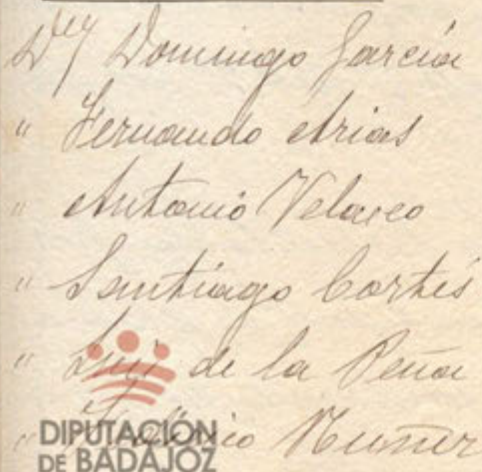 Domingo García
" Fernando Arias
" Antonio Velasco
" Santiago Cortés
" Luis de la Peña
" Muñoz
DIPUTACIÓN
DE BADAJOZ